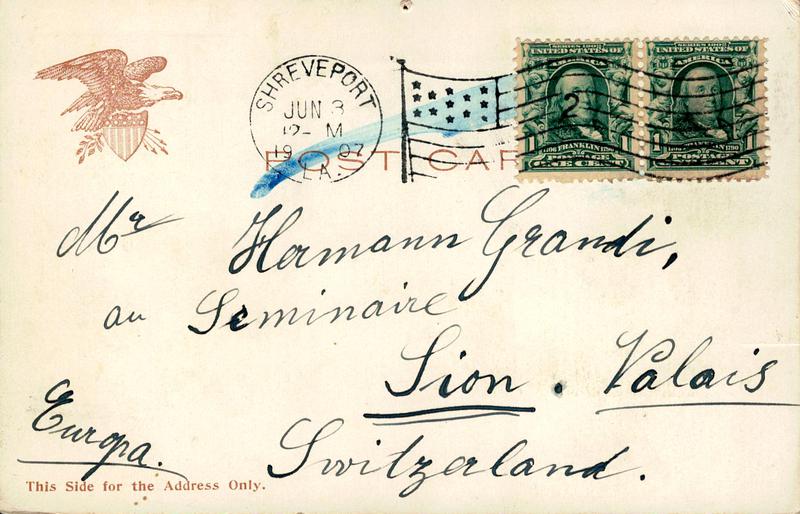 SHREVEPORT
JUN 3
12- M
1907
LA.
SERIES 1902
UNITED STATES OF
AMERICA
1706 FRANKLIN 1790
POSTAGE
1 ONE CENT 1
SERIES 1902
UNITED STATES OF
AMERICA
1706 FRANKLIN 1790
POSTAGE
1 ONE CENT 1
2
POST CAR
Mr Hermann Grandi,
au Seminaire
Sion. Valais
Europa.
Switzerland.
This Side for the Address Only.